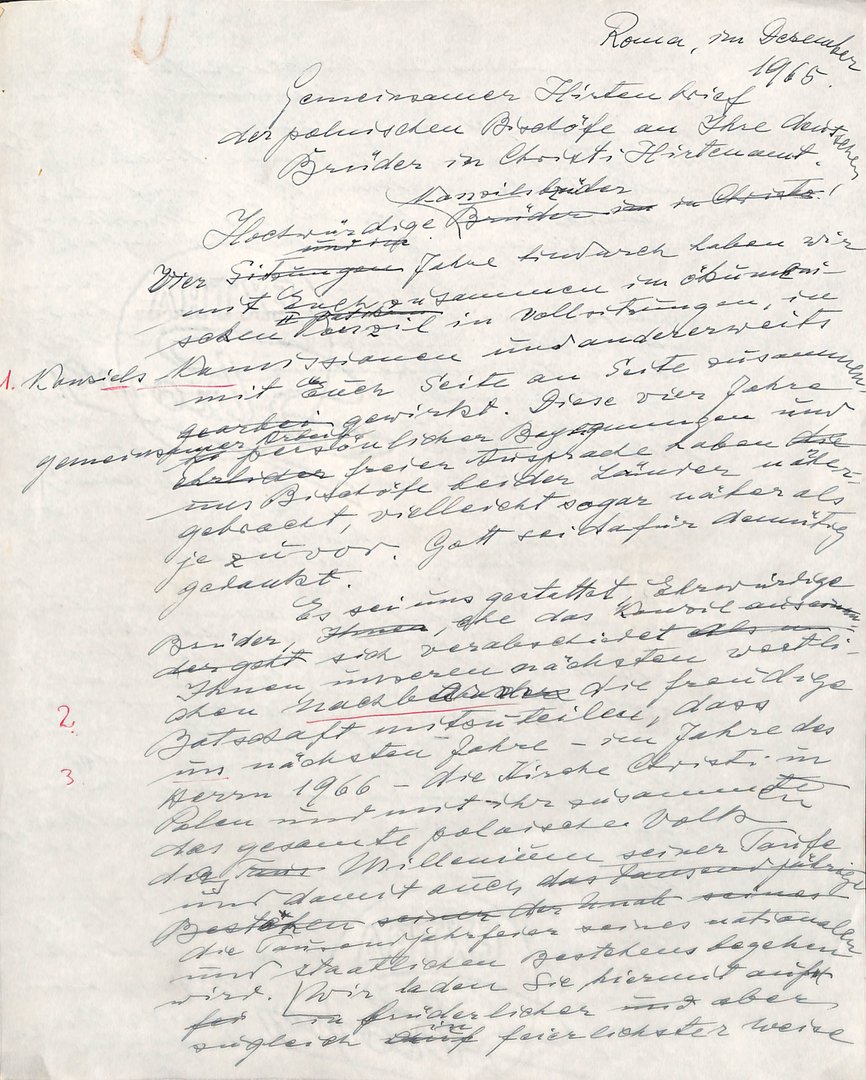 Roma, im Dezember
1965.
Gemeinsamer Hirtenbrief
der polnischen Bischöfe an Ihre deutschen
Brüder in Christi Hirtenamt.
Konzilsbrüder
Hochwürdige Brüder im in Christo!
und in
Vier Sitzungen Jahre hindurch haben wir
mit Euch zusammen im ökumeni-
II
schen Konzil in Vollsitzungen, in
1. Konzils Kommissionen und andererweits
mit Euch Seite an Seite zusammen
gearbei gewirkt. Diese vier Jahre
gemeinsamer Arbeit
persönlicher Begegnungen und
Ehrlicher freier Aussprache haben die
uns Bischöfe beider Länder näher-
gebracht, vielleicht sogar näher als
je zuvor. Gott sei dafür demütig
gedankt.
Es sei uns gestattet, Ehrwürdige
Brüder, Ihnen, ehe das Konzil ausein-
dergeht sich verabschiedet als un
Ihnen unseren nächsten westli-
chen Nachbarn die freudige
2. Botschaft mitzuteilen, dass
im nächsten Jahre – im Jahre des
3 Herrn 1966 – die Kirche Christi in
Polen und mit ihr zusammen
das gesamte polnische Volk
das Millenium seiner Taufe
und damit auch das tausendjährige
Bestehen seiner der seines
die Tausendjahrfeier seines nationalen
und staatlichen Bestehens begehen
wird. Wir laden Sie hiermit auf
fei in brüderlicher und aber
zugleich auf in feierlichster Weise